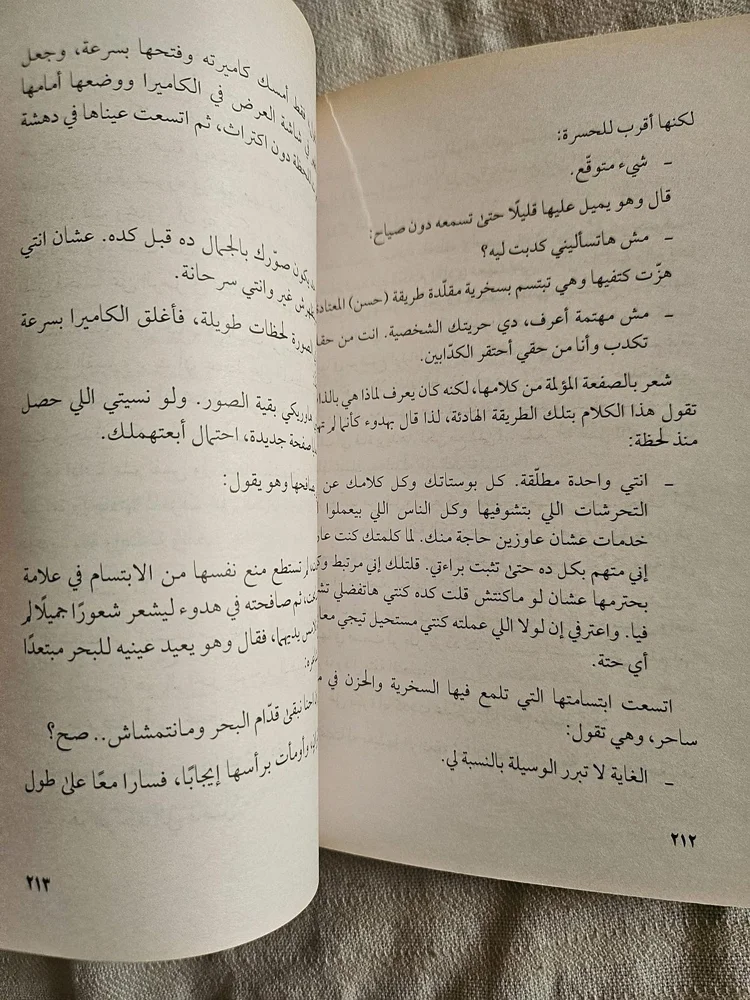 لكنها أقرب للحسرة:
– شيء متوقّع.
قال وهو يميل عليها قليلًا حتىٰ تسمعه دون صياح:
– مش هاتسأليني كدبت ليه؟
هزّت كتفيها وهي تبتسم بسخرية مقلّدة طريقة (حسن) المعتادة
– مش مهتمة أعرف، دي حريتك الشخصية. انت من حقك
تكدب وأنا من حقي أحتقر الكدّابين.
شعر بالصفعة المؤلمة من كلامها، لكنه كان يعرف لماذا هي بالذات
تقول هذا الكلام بتلك الطريقة الهادئة، لذا قال بهدوء كأنما لم
منذ لحظة:
– انتي واحدة مطلّقة. كل بوستاتك وكل كلامك عن
التحرشات اللي بتشوفيها وكل الناس اللي بيعملوا
خدمات عشان عاوزين حاجة منك. لما كلمتك كنت
إني متهم بكل ده حتىٰ تثبت براءتي. قلتلك إني مرتبط
بحترمها عشان لو ماكنتش قلت كده كنتي هاتفضلي
فيا. واعترفي إن لولا اللي عملته كنتي مستحيل تيجي
أي حتة.
اتسعت ابتسامتها التي تلمع فيها السخرية والحزن في
ساحر، وهي تقول:
– الغاية لا تبرر الوسيلة بالنسبة لي.
٢١٢
فقط أمسك كاميرته وفتحها بسرعة، وجعل
شاشة العرض في الكاميرا ووضعها أمامها
للحظة دون اكتراث، ثم اتسعت عيناها في دهشة
يكون صوّرك بالجمال ده قبل كده. عشان انتي
غير وانتي سرحانة.
الصورة لحظات طويلة، فأغلق الكاميرا بسرعة
بقية الصور. ولو نسيتي اللي حصل
صفحة جديدة، احتمال أبعتهملك.
وهو يقول:
تستطع منع نفسها من الابتسام في علامة
ثم صافحته في هدوء ليشعر شعورًا جميلًا لم
فقال وهو يعيد عينيه للبحر مبتعدًا
احنا نبقىٰ قدّام البحر ومانتمشاش.. صح؟
وأومأت برأسها إيجابًا، فسارا معًا علىٰ طول
٢١٣